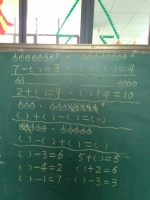 7-( )=3 ( )-( )=4
2+( )=9 ( )+4=10
( )+( )-( )=( )
( )-( )+( )=( )
( )-3=6 5+( )=5
( )-4=2 ( )+2=6
( )-1=7 ( )-3=3